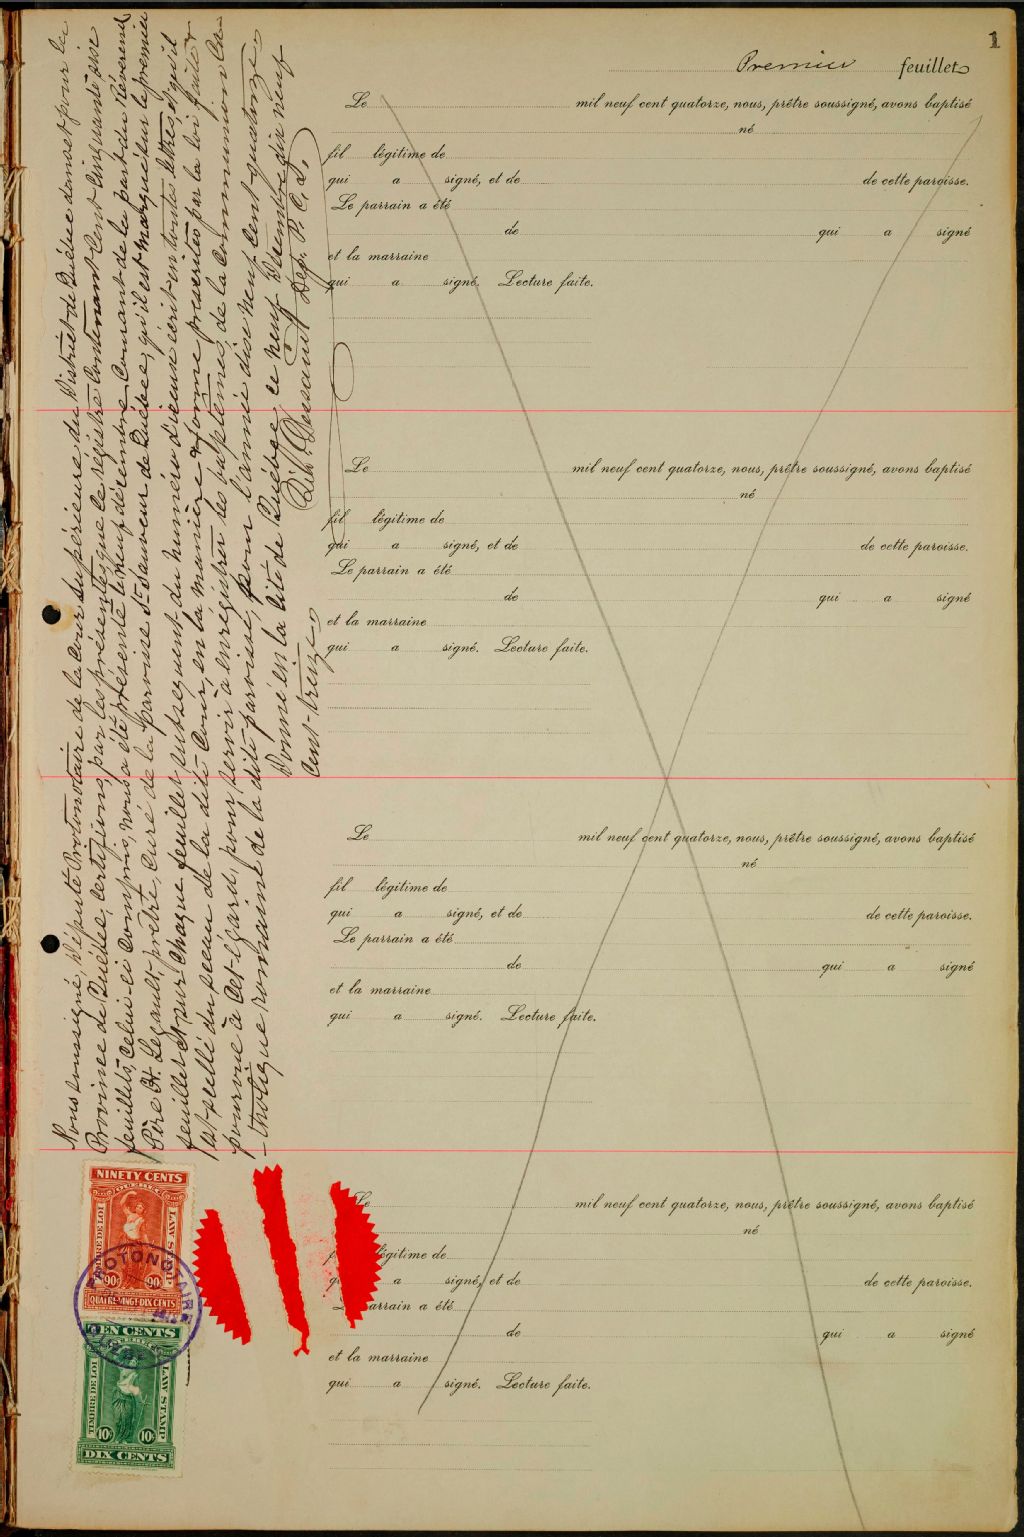 1
Premier feuillet
Nous soussigné, Député Protonotaire de la Cour Supérieure du District de Québec dans et pour la
Province de Québec, certifions, par les présentes, que le registre Contenant Cent cinquante six
feuillets, celui-ci compris, nous a été présenté le neuf décembre Courant de la part du Révérend
Père H. Legault, prêtre, Curé de la paroisse St Sauveur de Québec, qu'il est marqué sur le premier
feuillet et sur chaque feuillet subséquent du numéro d'icelui écrit en toutes lettres, et qu'il
est scellé du sceau de la dite Cour, en la manière & forme prescrites par la loi faite &
pourvue à cet égard, pour servir à enregistrer les baptêmes de la Communion Ca-
-tholique romaine de la dite paroisse, pour l'année dix neuf cent quatorze.
Donné en la Cité de Québec ce neuf Décembre dix neuf
cent-treize.
Dessaint Dep. P. C. S.
Le mil neuf cent quatorze, nous, prêtre soussigné, avons baptisé
né
fil légitime de
qui a signé, et de de cette paroisse.
Le parrain a été
de qui a signé
et la marraine
qui a signé. Lecture faite.
Le mil neuf cent quatorze, nous, prêtre soussigné, avons baptisé
né
fil légitime de
qui a signé, et de de cette paroisse.
Le parrain a été
de qui a signé
et la marraine
qui a signé. Lecture faite.
Le mil neuf cent quatorze, nous, prêtre soussigné, avons baptisé
né
fil légitime de
qui a signé, et de de cette paroisse.
Le parrain a été
de qui a signé
et la marraine
qui a signé. Lecture faite.
Le mil neuf cent quatorze, nous, prêtre soussigné, avons baptisé
né
légitime de
a signé, et de de cette paroisse.
parrain a été
de qui a signé
et la marraine
qui a signé. Lecture faite.
NINETY CENTS
QUEBEC
TIMBRE DE LOI
LAW STAMP
90c 90c
QUATRE-VINGT-DIX CENTS
PROTONOTAIRE
QUEBEC
TEN CENTS
TIMBRE DE LOI
LAW STAMP
10c 10c
DIX CENTS